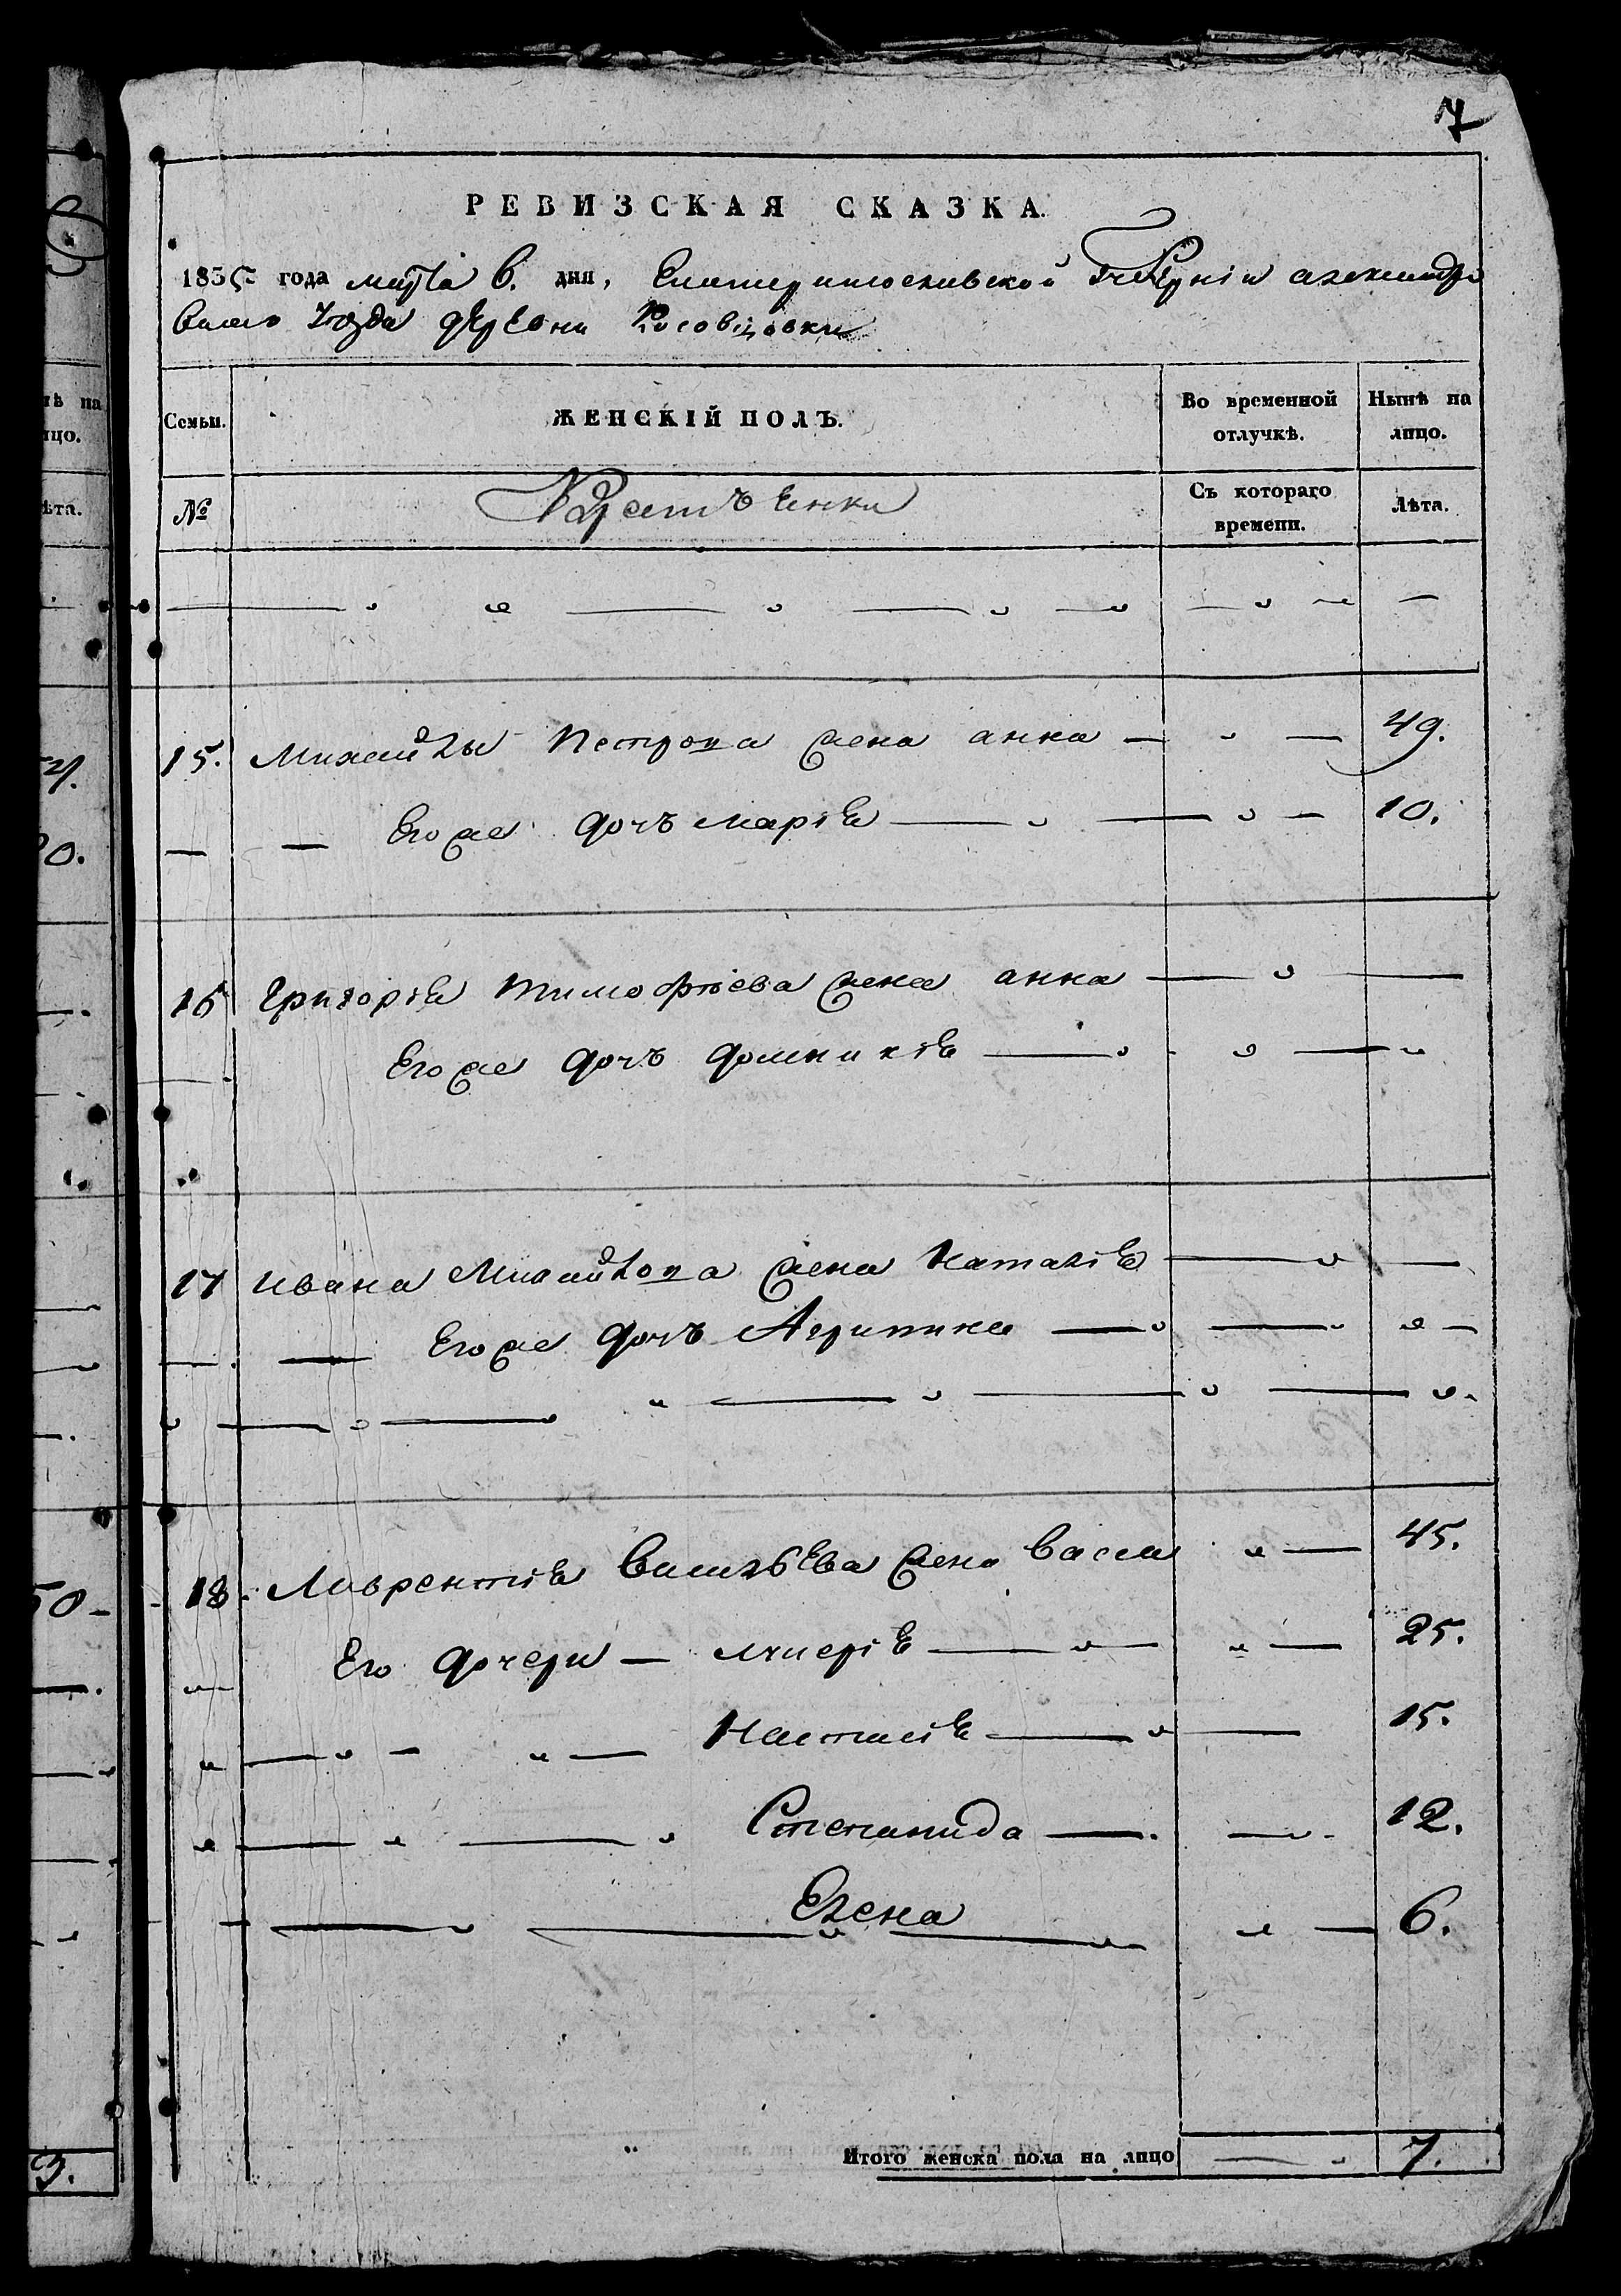 7
РЕВИЗСКАЯ СКАЗКА.
1835 года марта 6. дня, Екатеринославской Губерніи александро
вскаго уезда деревни
Семьи. ЖЕНСКІЙ ПОЛЪ. Во временной отлучкѣ. Нынѣ на лицо.
№ Крестьенки Съ котораго времени. Лѣта.
15. Михайлы Петрова жена анна 49.
Егоже дочъ маріѣ 10.
16 Григоріѣ тимофѣева жена анна
Егоже дочъ домникіѣ
17 ивана Михайлова жена Наталіѣ
Егоже дочъ Агрипина
18. Лаврентіѣ Васильева жена Васса 45.
Его дочери — маріѣ 25.
Настасіѣ 15.
Степанида 12.
Елена 6.
Итого женска пола на лицо 7.
нѣ на
ицо.
ѣта.
0.
50
3.